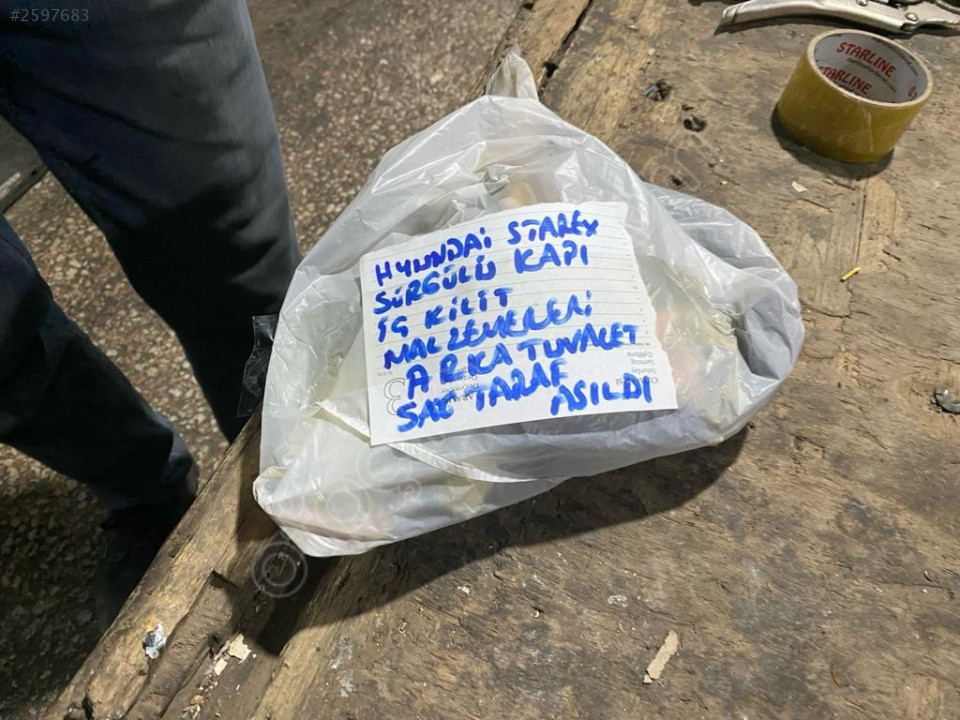 #2597683
STARLINE
STARLINE
HYUNDAİ STAREX
SÜRGÜLÜ KAPI
İÇ KİLİT
MALZEMELERİ
ARKA TUVALET
SAĞ TARAF
ASILDI